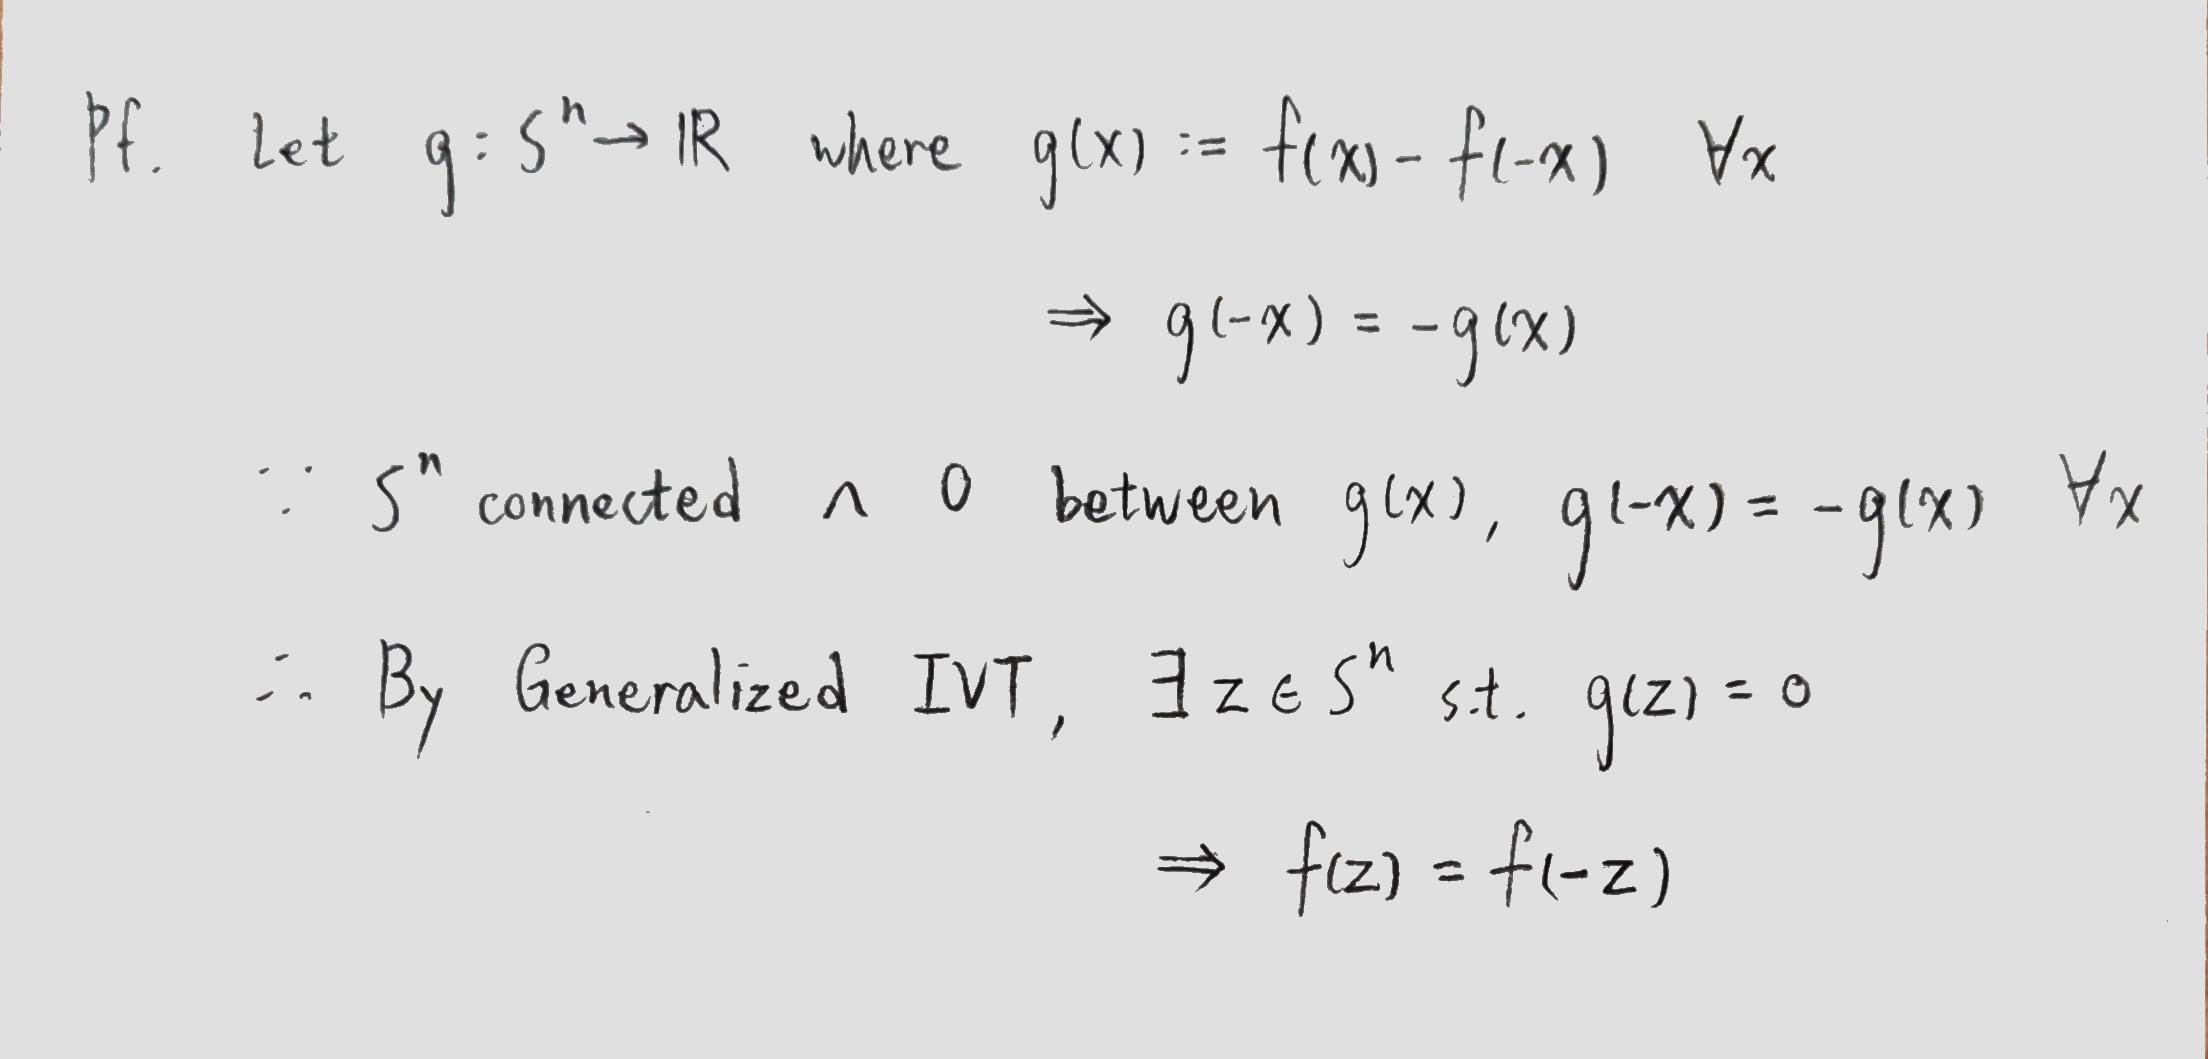 Pf. Let g: Sⁿ → ℝ where g(x) := f(x) - f(-x) ∀x
⇒ g(-x) = -g(x)
∵ Sⁿ connected ∧ 0 between g(x), g(-x) = -g(x) ∀x
∴ By Generalized IVT, ∃ z ∈ Sⁿ s.t. g(z) = 0
⇒ f(z) = f(-z)